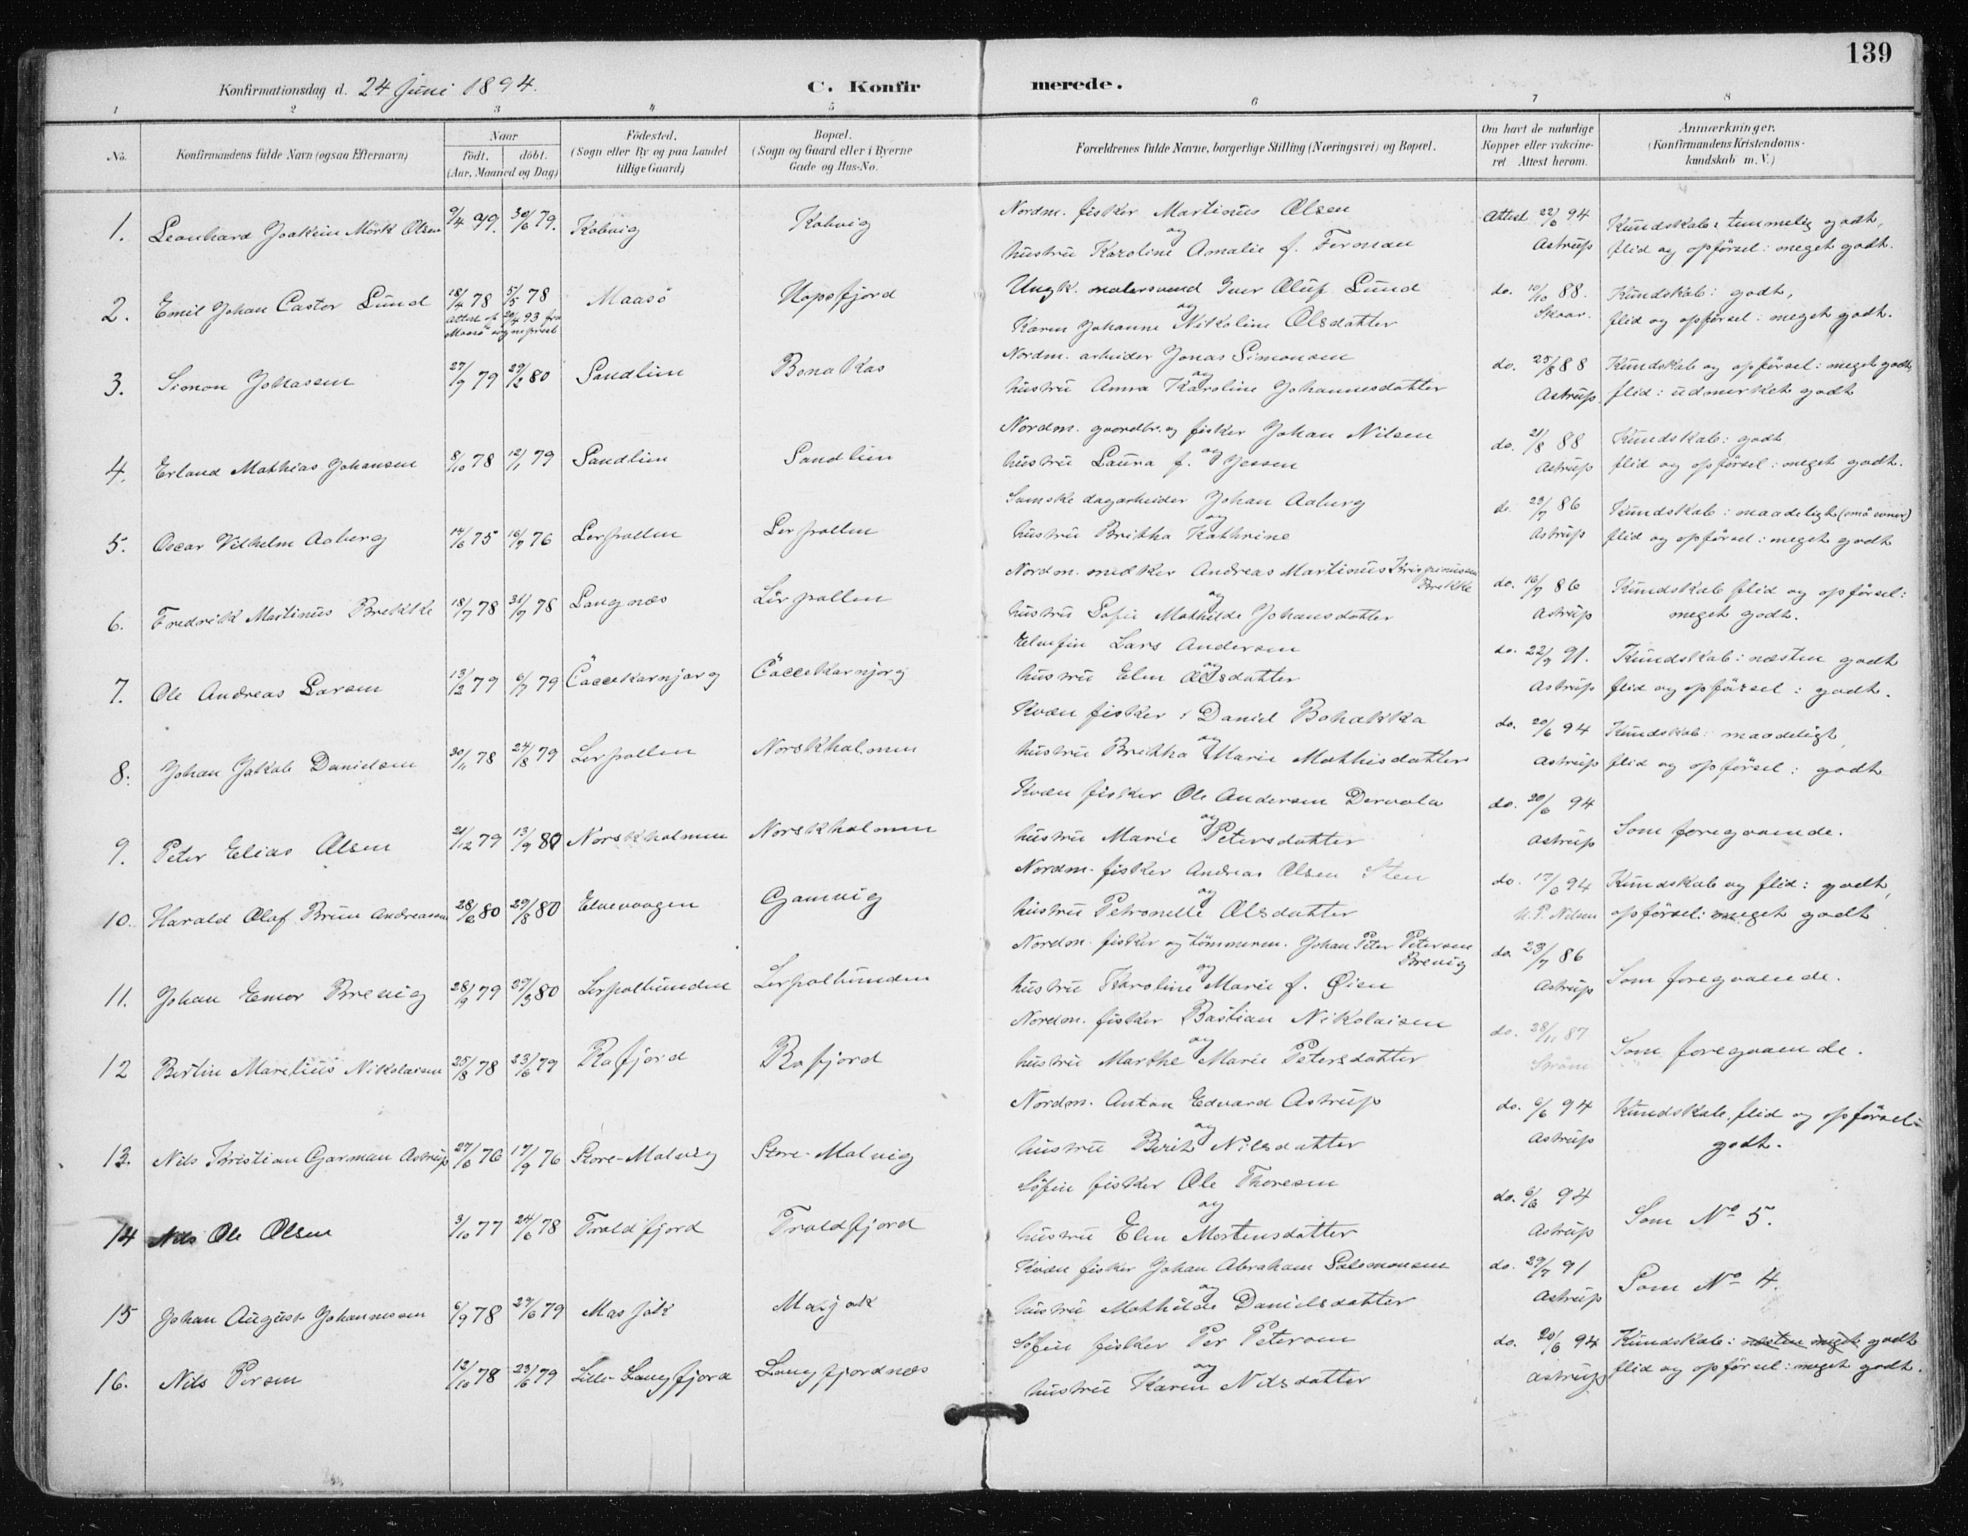 139
Konfirmationsdag d. 24 Juni 1894. C. Konfirmerede.
1 2 3 4 5 6 7 8
No. Konfirmandens fulde Navn (ogsaa Efternavn) Naar født. døbt. (Aar, Maaned og Dag) Fødested. (Sogn eller By og paa Landet tillige Gaard) Bopæl. (Sogn og Gaard eller i Byerne Gade og Hus-No. Forældrenes fulde Navne, borgerlige Stilling (Næringsvei) og Bopæl. Om havt de naturlige Kopper eller vaccineret Attest herom. Anmærkninger. (Konfirmandens Kristendomskundskab m. V.)
1. Leonhard Joakim Mörk Olsen 9/4 79. 30/6 79. Kobvig Kobvig Nordm. fisker Martinus Olsen Attest 22/6 94 Kundskab: temmelig godt,
og hustru Karoline Amalie f. Forman Astrup flid og opførsel: meget godt.
2. Emil Johan Castor Lund 18/4 78 5/5 78 Maasö Hopsfjord Ungk. malersvend Iver Oluf Lund do. 10/10 88. Kundskab: godt,
Attest af 20/4 93 fra Maasö sogneprest og Karen Johanne Nikoline Olsdatter Skaar. flid og opførsel: meget godt.
3. Simon Johasen 27/9 79 29/2 80 Sandlien Bonakas Nordm. arbeider Jonas Simonsen do. 25/8 88 Kundskab og opførsel: meget godt,
og hustru Anna Karoline Johannesdatter Astrup. flid: udmerket godt
4. Erland Mathias Johansen 8/10 78 12/1 79 Sandlien Sandlien Nordm. gaardbr. og fisker Johan Nilsen do. 21/8 88 Kundskab: godt
og hustru Laura f. Jessen Astrup flid og opførsel: meget godt.
5. Oscar Vilhelm Aaberg 14/6 75 16/7 76 Lerpollen Lerpollen Svenske dagarbeider Johan Aaberg do. 23/7 86 Kundskab: maadeligt (små evner)
og hustru Brithe Kathrine Astrup flid og opførsel: meget godt
6. Fredrik Martinus Brekke 18/7 78 31/7 78 Langnæs Lerpollen Nordm. Andreas Martinus Brekke do. 16/7 86 Kundskab flid og opførsel:
og hustru Sofie Mathilde Johansdatter Astrup meget godt.
7. Ole Andreas Larsen 13/2 79 6/7 79 Čaccekarnjarg Čaccekarnjarg Elvefin Lars Andersen do. 22/7 91. Kundskab: næsten godt
og hustru Elen Olsdatter Astrup flid og opførsel: godt.
8. Johan Jakob Danielsen 30/11 78 24/8 79 Lerpollen Norskholmen Kvæn fisker Daniel Bohakka do. 20/6 94 Kundskab: maadeligt,
og hustru Brithe Marie Mathisdatter Astrup flid og opførsel: godt
9. Peter Elias Olsen 21/12 79 13/9 80 Norskholmen Norskholmen Kvæn fisker Ole Andersen Dervola do. 20/6 94 Som foregaaende.
og hustru Marie Petersdatter Astrup
10. Harald Olaf Brun Andreassen 28/6 80 29/8 80 Elvevaagen Gamvig Nordm. fisker Andreas Olsen Sten do. 17/6 94 Kundskab og flid: godt,
og hustru Petronelle Olsdatter N. P. Nilsen opførsel: meget godt
11. Johan Emor Brevig 28/9 79 27/3 80 Lerpolbunden Lerpolbunden Nordm. fisker og tømmerm. Johan Peter Petersen Brevig do. 23/7 86 Som foregaaende.
og hustru Karoline Marie f. Øien Astrup
12 Bertin Marelius Nikolaisen 25/8 78 23/6 79 Rafjord Rafjord Nordm. fisker Bastian Nikolaisen do. 28/11 87 Som foregaaende.
og hustru Marthe Marie Petersdatter Ström
13. Nils Kristian Garman Astrup 27/6 76 17/9 76 Store-Malvig Store-Malvig Nordm. Anton Edvard Astrup do. 6/6 94 Kundskab, flid og opførsel:
og hustru Berit Nilsdatter Astrup godt.
14 Nils Ole Olsen 3/10 77 24/6 78 Troldfjord Troldfjord Söfin fisker Ole Thoresen do. 6/6 94 Som No 5.
og hustru Elen Mortensdatter Astrup
15 Johan August Johannessen 6/9 78 29/6 79 Masjok Masjok Kvæn fisker Johan Abraham Salomonsen do. 29/7 91 Som No 4.
og hustru Mathilde Danielsdatter Astrup
16. Nils Persen 12/10 78 23/6 79 Lille-Langfjord Langfjordnæs Söfin fisker Per Petersen do. 20/6 94 Kundskab: næsten meget godt
og hustru Karen Nilsdatter Astrup flid og opførsel: meget godt.